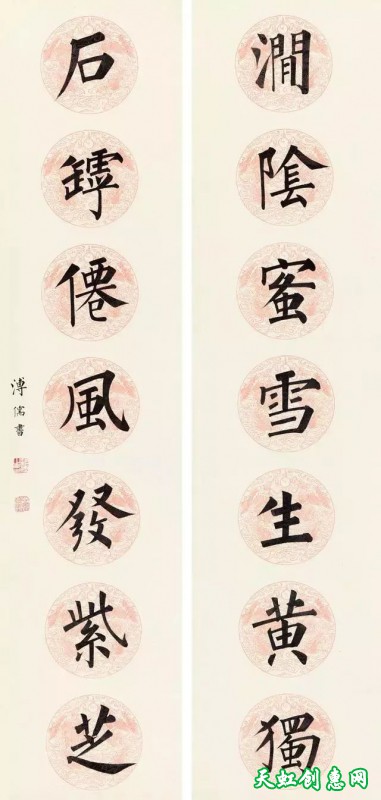 澗陰蜜雪生黄獨
石罅僊風發紫芝
溥儒書
天虹创惠网